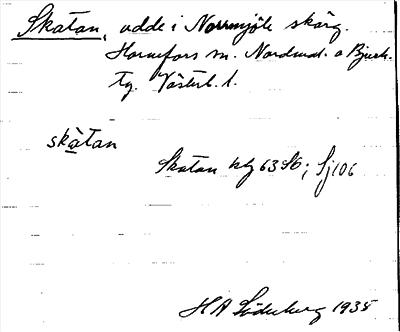 Skatan, udde i Norrmjöle skärg.
Hörnefors sn. Nordmal. o Bjurh.
tg. Västerb. l.
skàtan
Skatan klg 63 SO; Sj 106
HA Söderberg 1935